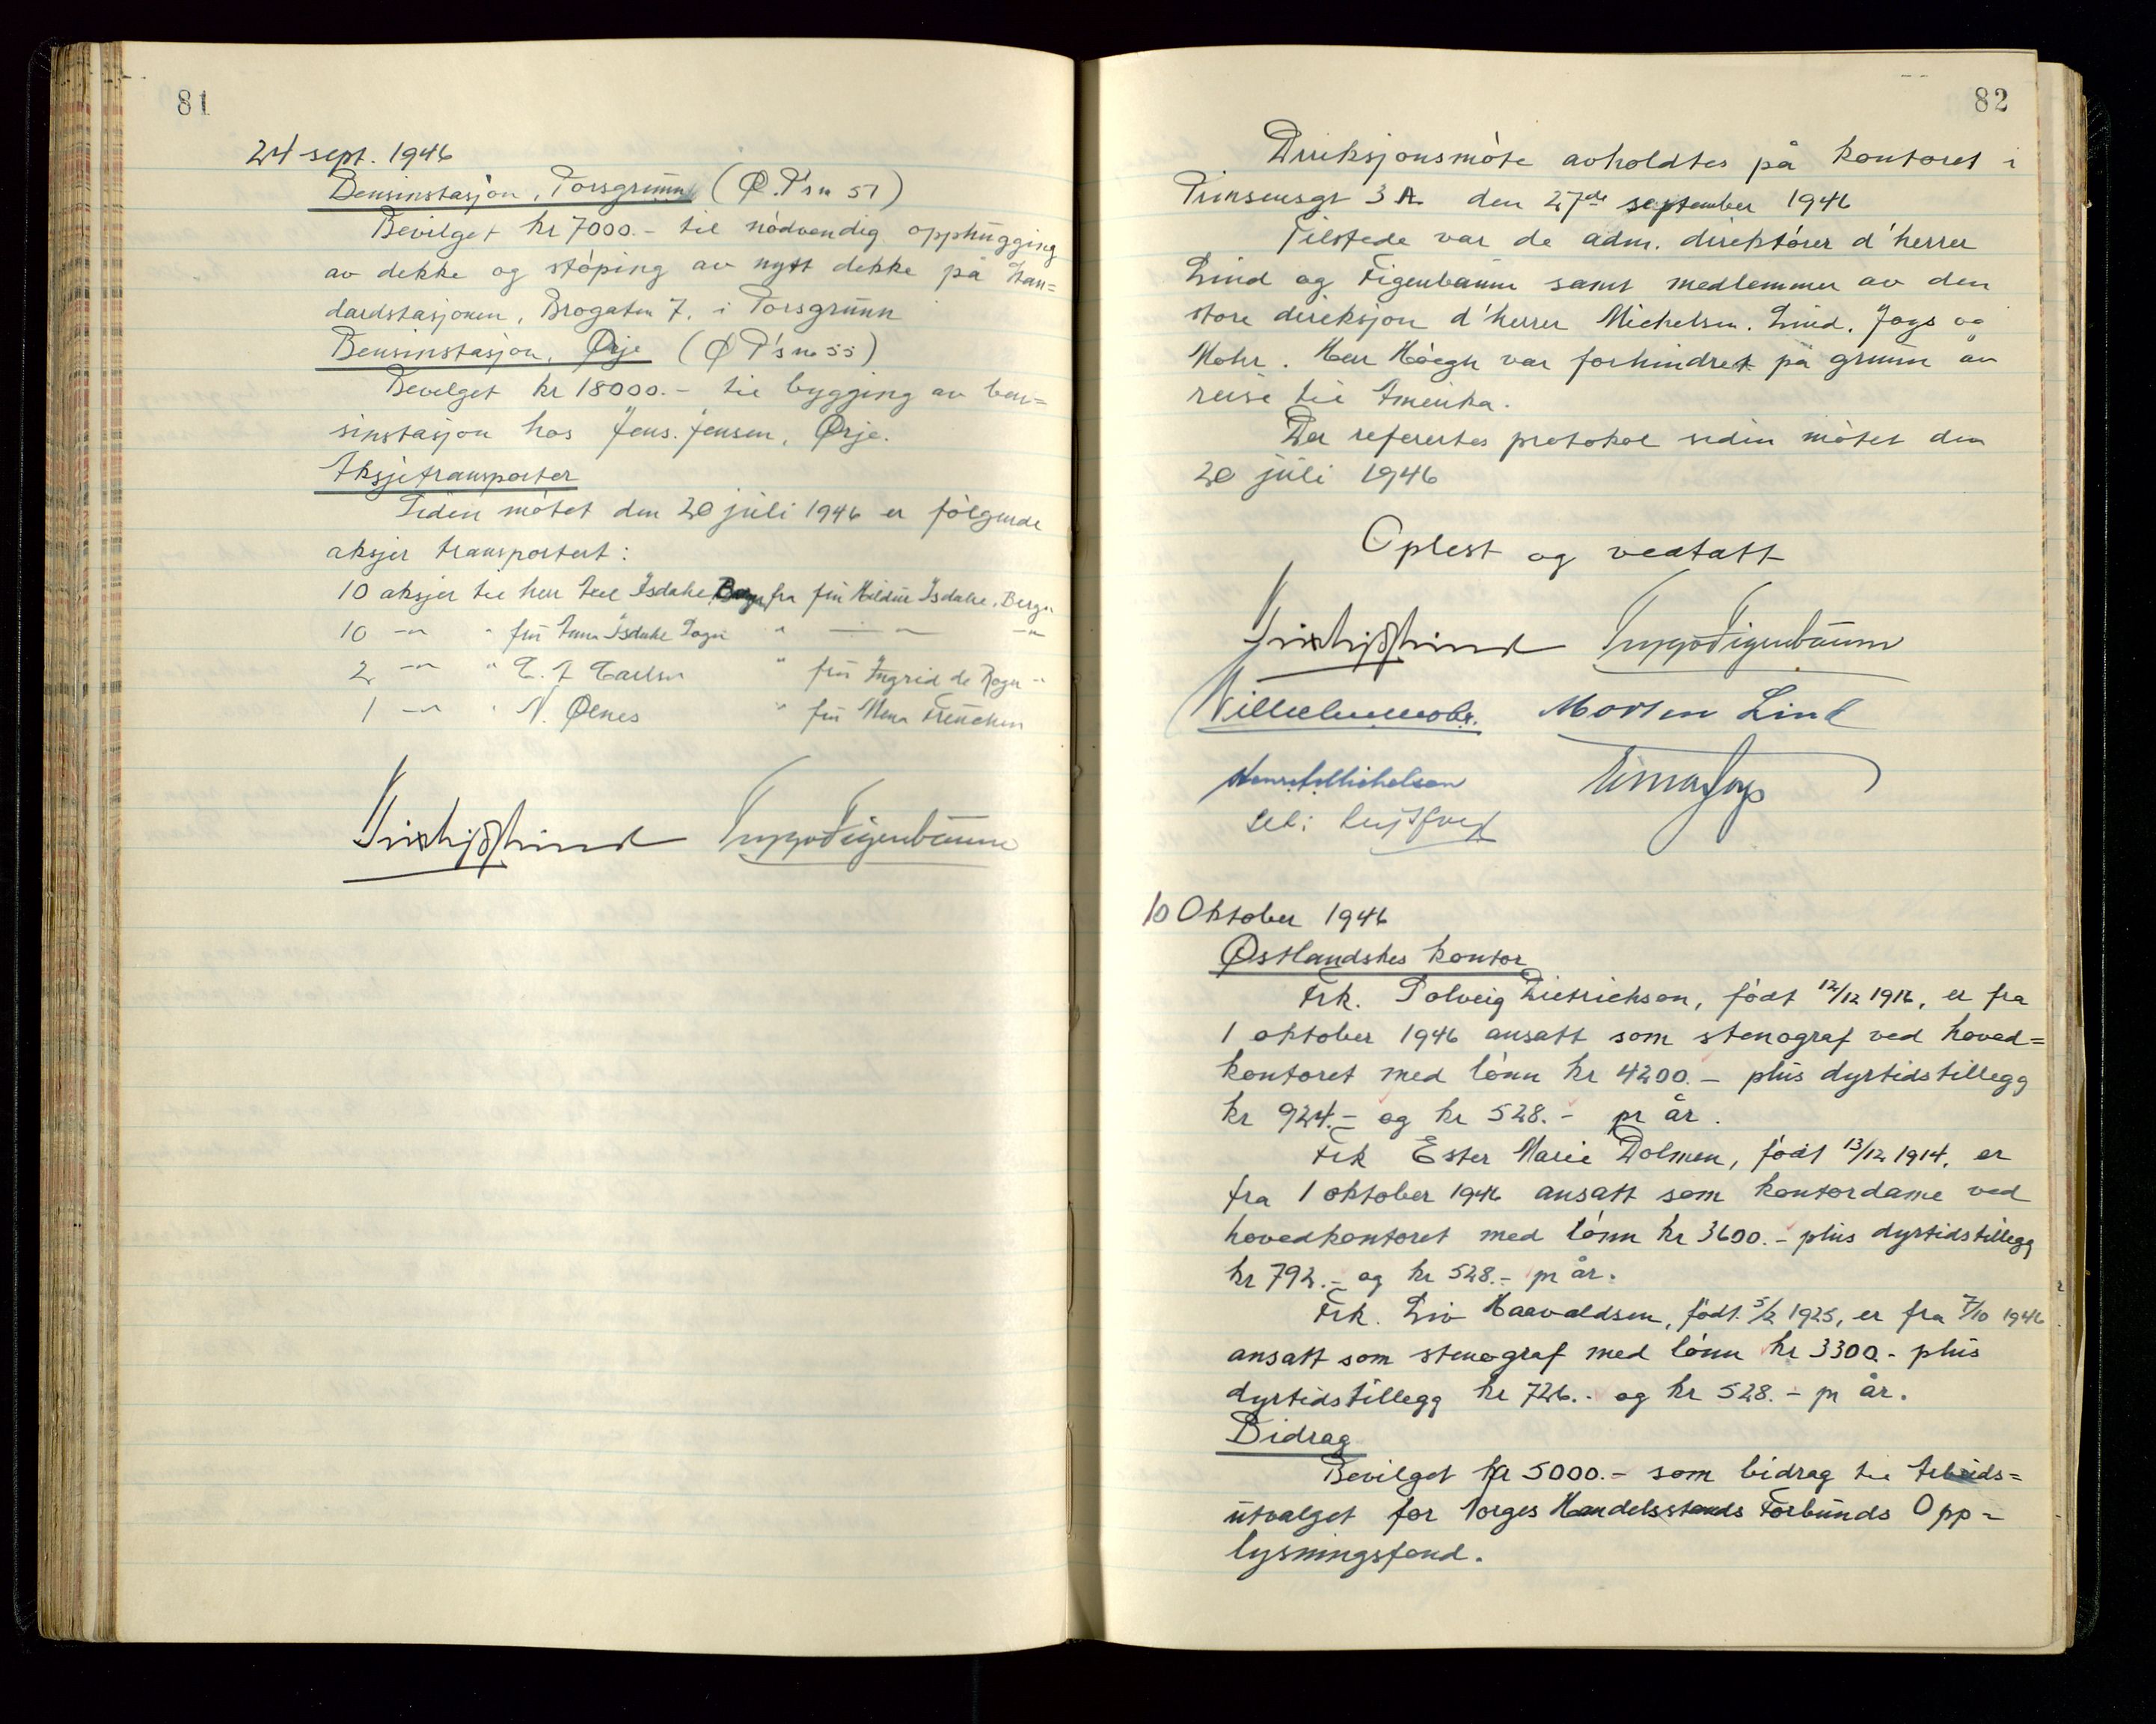 81
24 sept. 1946
Bensinstasjon, Porsgrunn (Ø.P's no 51)
Bevilget kr 7000.- til nödvendig opphugging
av dekke og stöping av nytt dekke på Stan=
dardstasjonen, Brogaten 7, i Porsgrunn
Bensinstasjon, Ørje (Ø P's no 55)
Bevilget kr 18000.- til bygging av ben=
sinstasjon hos Jens Jensen, Ørje.
Aksjetransporter
Siden mötet den 20 juli 1946 er fölgende
aksjer transportert:
10 aksjer til herr Isdahl fra fru Hildur Isdahl, Bergen
10 -"- " fru Anna Isdahl " -"- -"-
2 -"- " Carlsen " fru Ingrid de
1 -"- " N. Ølnes " fru
82
Direksjonsmöte avholdtes på kontoret i
Prinsensgt 3 A den 27de september 1946
Tilstede var de adm. direktörer d'herrer
Lind og Figenbaum samt medlemmer av den
store direksjon d'herrer Michelsen, Lind, Joys og
Mohr. Herr Höegh var forhindret på grunn av
reise til Amerika.
Der refertes protokol siden mötet den
20 juli 1946
Oplest og vedtatt
Wilhelm Mohr. Morten Lind
10 Oktober 1946
Østlandskes kontor
Frk. Solveig Dietrichson, födt 12/12 1916, er fra
1 oktober 1946 ansatt som stenograf ved hoved=
kontoret med lönn kr 4200.- plus dyrtidstillegg
kr 924.- og kr 528.- pr år.
Frk Ester Marie Dolmen, födt 13/12 1914, er
fra 1 oktober 1946 ansatt som kontordame ved
hovedkontoret med lönn kr 3600.- plus dyrtidstillegg
kr 792.- og kr 528.- pr år.
Frk. Liv Haavaldsen, födt 5/2 1925, er fra 7/10 1946
ansatt som stenograf med lönn kr 3300.- plus
dyrtidstillegg kr 726.- og kr 528.- pr år.
Bidrag
Bevilget kr 5000.- som bidrag til Arbeids=
utvalget for Norges Handelsstands Forbunds Opp=
lysningsfond.